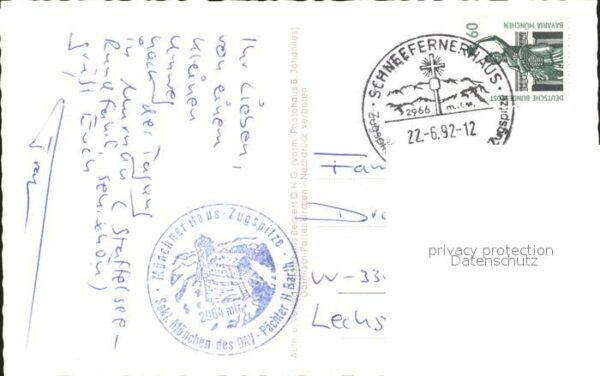 Ihr Lieben,
von einem
kleinen
Umweg
nach der Tagung
in Murnau (Staffelsee-
Rundfahrt, schön)
grüßt Euch
Aufn. u. Verlag Beckert O.H.G. (vorm. Photohaus B. Johannes)
Garmisch-Partenkirchen - Nachdruck verboten
Münchner Haus - Zugspitze
2964 m
Sekt. München des DAV - Pächter H. Barth
SCHNEEFERNERHAUS
2966 m.ü.M.
Zugspitze
22-6.92-12
60
BAVARIA MÜNCHEN
DEUTSCHE BUNDESPOST
Fam
W-33
Lechs
privacy protection
Datenschutz